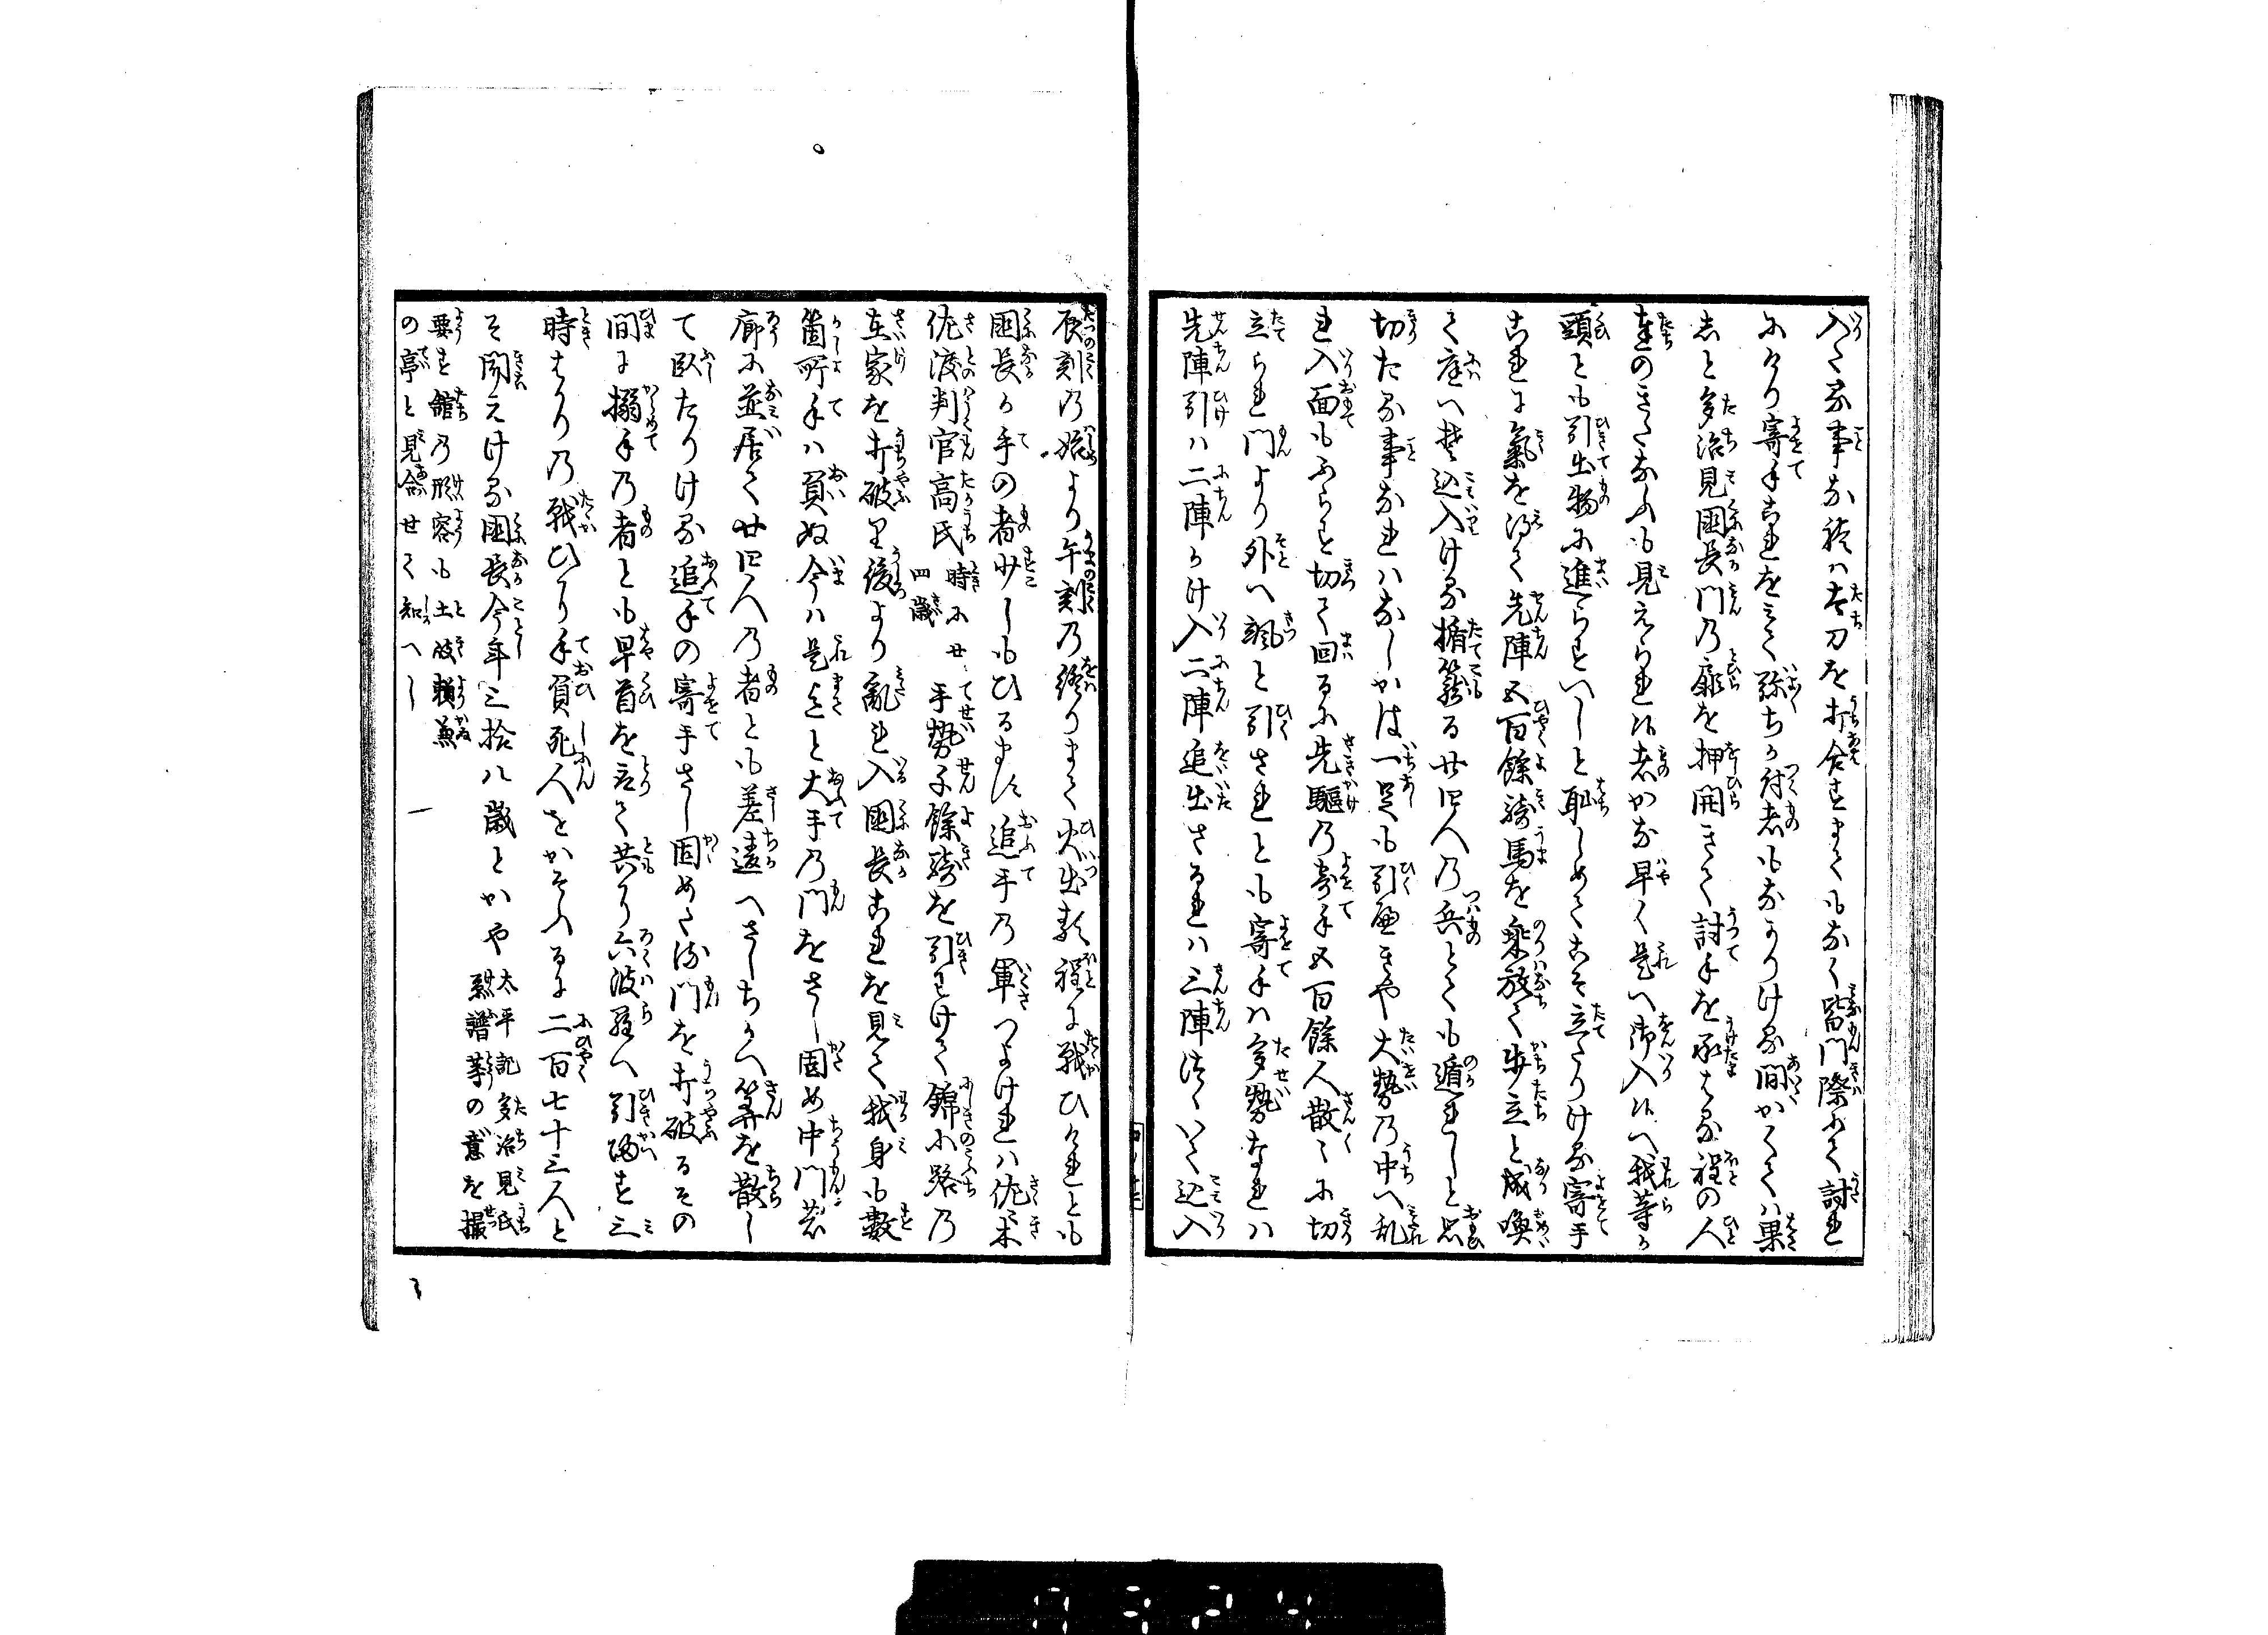 入る事なれは太刀を打合すまてもなく皆門際にて討れ
にけり寄手これをみて弥ちか付者もなかりける間かくては果
しと多治見国長門の扉を押開きて討手を承はる程の人
達のきたなふも見えられ候者かな早く是へ御入候へ我等か
頭とも引出物に進らすへしと恥しめてこそ立たりける寄手
これに気を得て先陣五百余騎馬を乗放て歩立と成喚
て庭へ込入ける楯篭る廿四人の兵とても遁れしと思
切たる事なれはなしかは一足も引へきや大勢の中へ乱
れ入面もふらす切て回るに先駆の寄手五百余人散々に切
立られ門より外へ颯と引されとも寄手は多勢なれは
先陣引は二陣かけ入二陣追出さるれは三陣つゝいて込入
辰刻の始より午刻の終りまて火出る程に戦ひけれとも
国長か手の者少しもひるます追手の軍つよけれは佐々木
佐渡判官高氏時に廿四歳手勢千余騎を引わけて錦小路の
在家を打破り後より乱れ入国長これを見て我身も数
箇所手は負ぬ今は是まてと大手の門をさし固め中門
廊に並居て廿四人の者とも差違へさしちかへ算を散し
て臥たりける追手の寄手さし固めたる門を打破るその
間に搦手の者とも早首を取て共に六波羅へ引帰す三
時はかりの戦ひに手負死人をかそふるに二百七十三人と
そ聞えける国長今年三拾八歳とかや
太平記多治見氏
系譜等の意を撮
要す館の形容も土岐頼兼
の亭と見合せて知へし